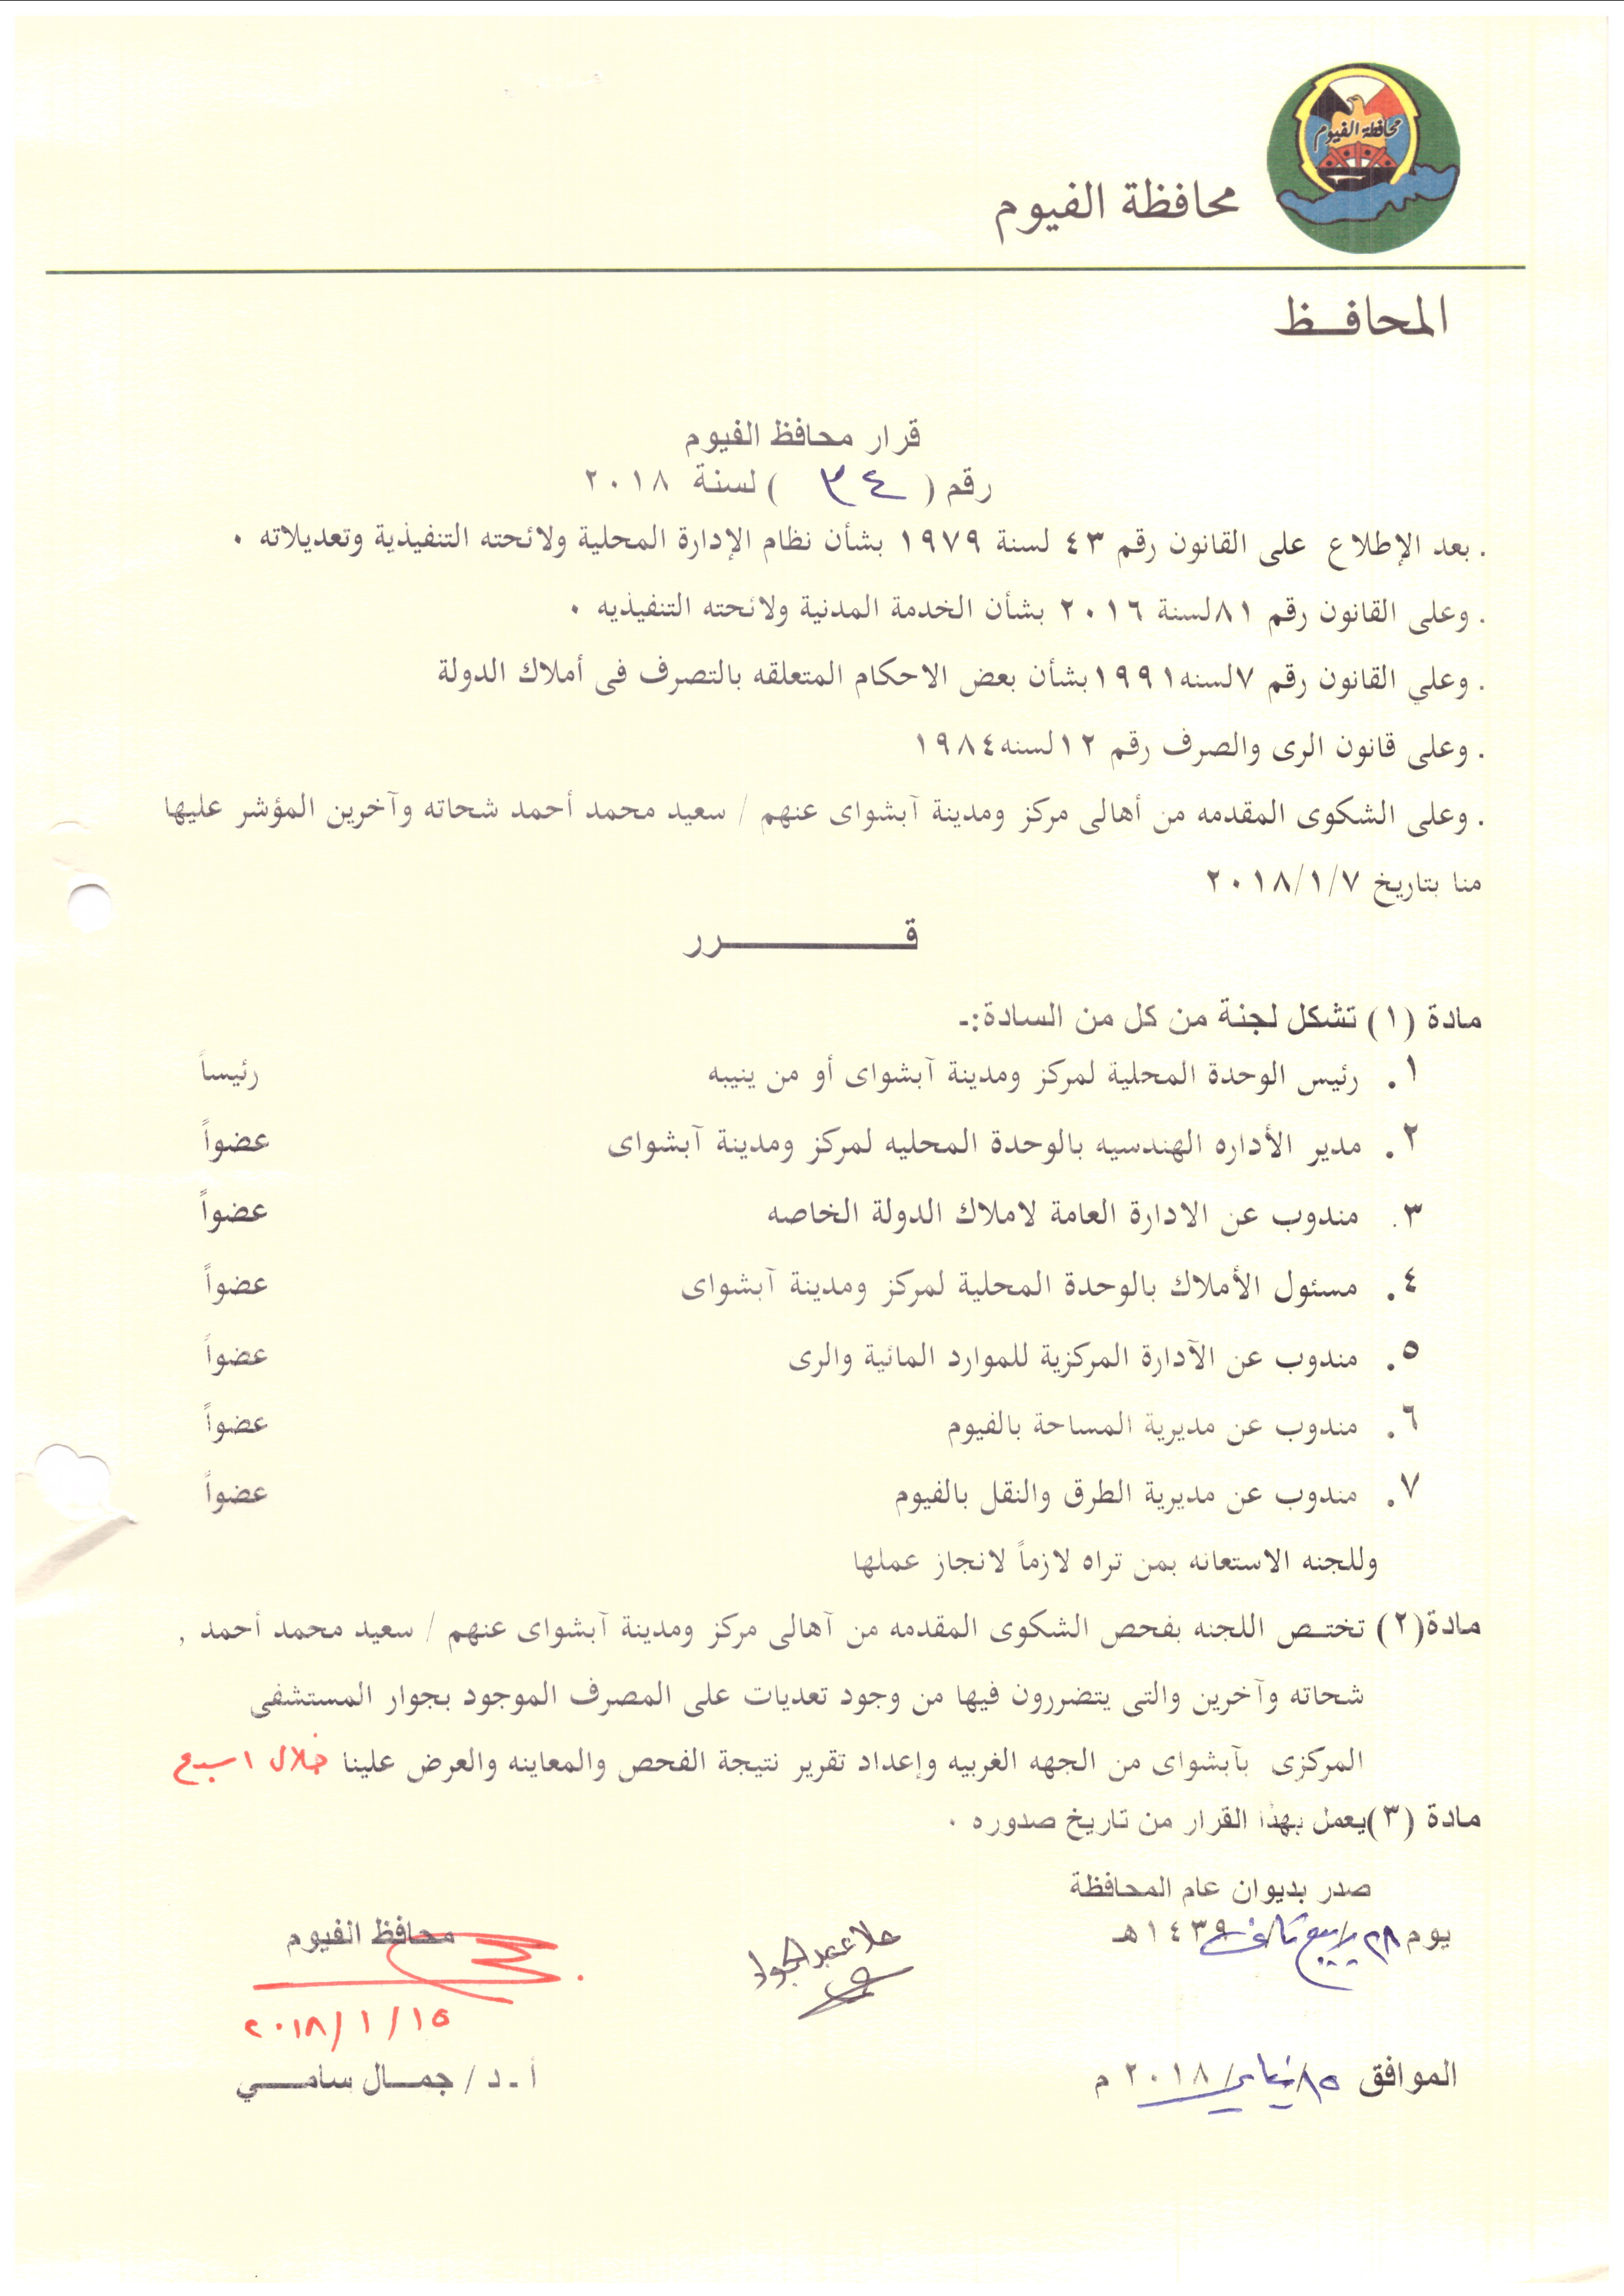 محافظة الفيوم
محافظة الفيوم
المحافــظ
قرار محافظ الفيوم
رقم ( ٣٤ ) لسنة ٢٠١٨
. بعد الإطلاع على القانون رقم ٤٣ لسنة ١٩٧٩ بشأن نظام الإدارة المحلية ولائحته التنفيذية وتعديلاته ٠
. وعلى القانون رقم ٨١لسنة ٢٠١٦ بشأن الخدمة المدنية ولائحته التنفيذيه ٠
. وعلي القانون رقم ٧لسنه١٩٩١بشأن بعض الاحكام المتعلقه بالتصرف فى أملاك الدولة
. وعلى قانون الرى والصرف رقم ١٢لسنه١٩٨٤
. وعلى الشكوى المقدمه من أهالى مركز ومدينة آبشواى عنهم / سعيد محمد أحمد شحاته وآخرين المؤشر عليها
منا بتاريخ ٢٠١٨/١/٧
قـــــــــرر
مادة (١) تشكل لجنة من كل من السادة:ـ
١. رئيس الوحدة المحلية لمركز ومدينة آبشواى أو من ينيبه رئيساً
٢. مدير الأداره الهندسيه بالوحدة المحليه لمركز ومدينة آبشواى عضواً
٣. مندوب عن الادارة العامة لاملاك الدولة الخاصه عضواً
٤. مسئول الأملاك بالوحدة المحلية لمركز ومدينة آبشواى عضواً
٥. مندوب عن الآدارة المركزية للموارد المائية والرى عضواً
٦. مندوب عن مديرية المساحة بالفيوم عضواً
٧. مندوب عن مديرية الطرق والنقل بالفيوم عضواً
وللجنه الاستعانه بمن تراه لازماً لانجاز عملها
مادة(٢) تختـص اللجنه بفحص الشكوى المقدمه من آهالى مركز ومدينة آبشواى عنهم / سعيد محمد أحمد ,
شحاته وآخرين والتى يتضررون فيها من وجود تعديات على المصرف الموجود بجوار المستشفى
المركزى بآبشواى من الجهه الغربيه وإعداد تقرير نتيجة الفحص والمعاينه والعرض علينا خلال اسبوع
مادة (٣)يعمل بهذا القرار من تاريخ صدوره ٠
صدر بديوان عام المحافظة
يوم ٢٨ ربيع ثانى ١٤٣٩هـ
محافظ الفيوم
٢٠١٨/١/١٥
الموافق ١٥/ يناير/ ٢٠١٨ م
أ ـ د / جمــال سامـــي